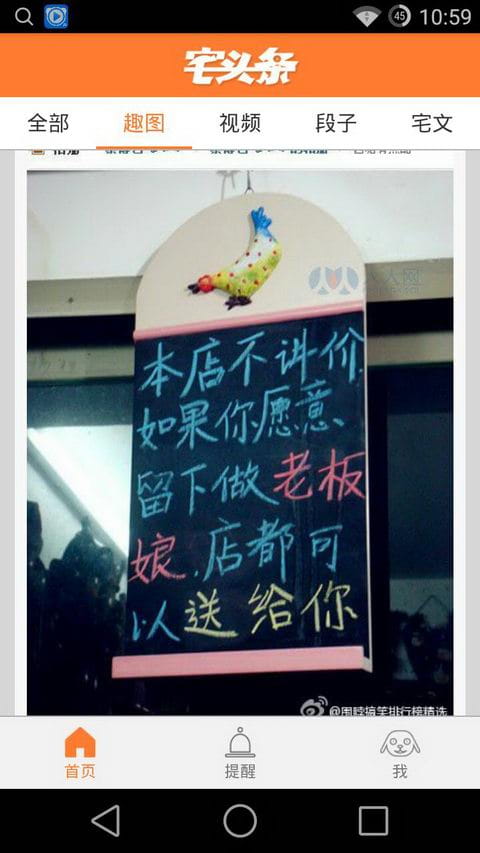 45 10:59
宅头条
全部 趣图 视频 段子 宅文
本店不讲价
如果你愿意、
留下做老板
娘.店都可
以送给你
人人网
@围脖搞笑排行榜精选
首页 提醒 我